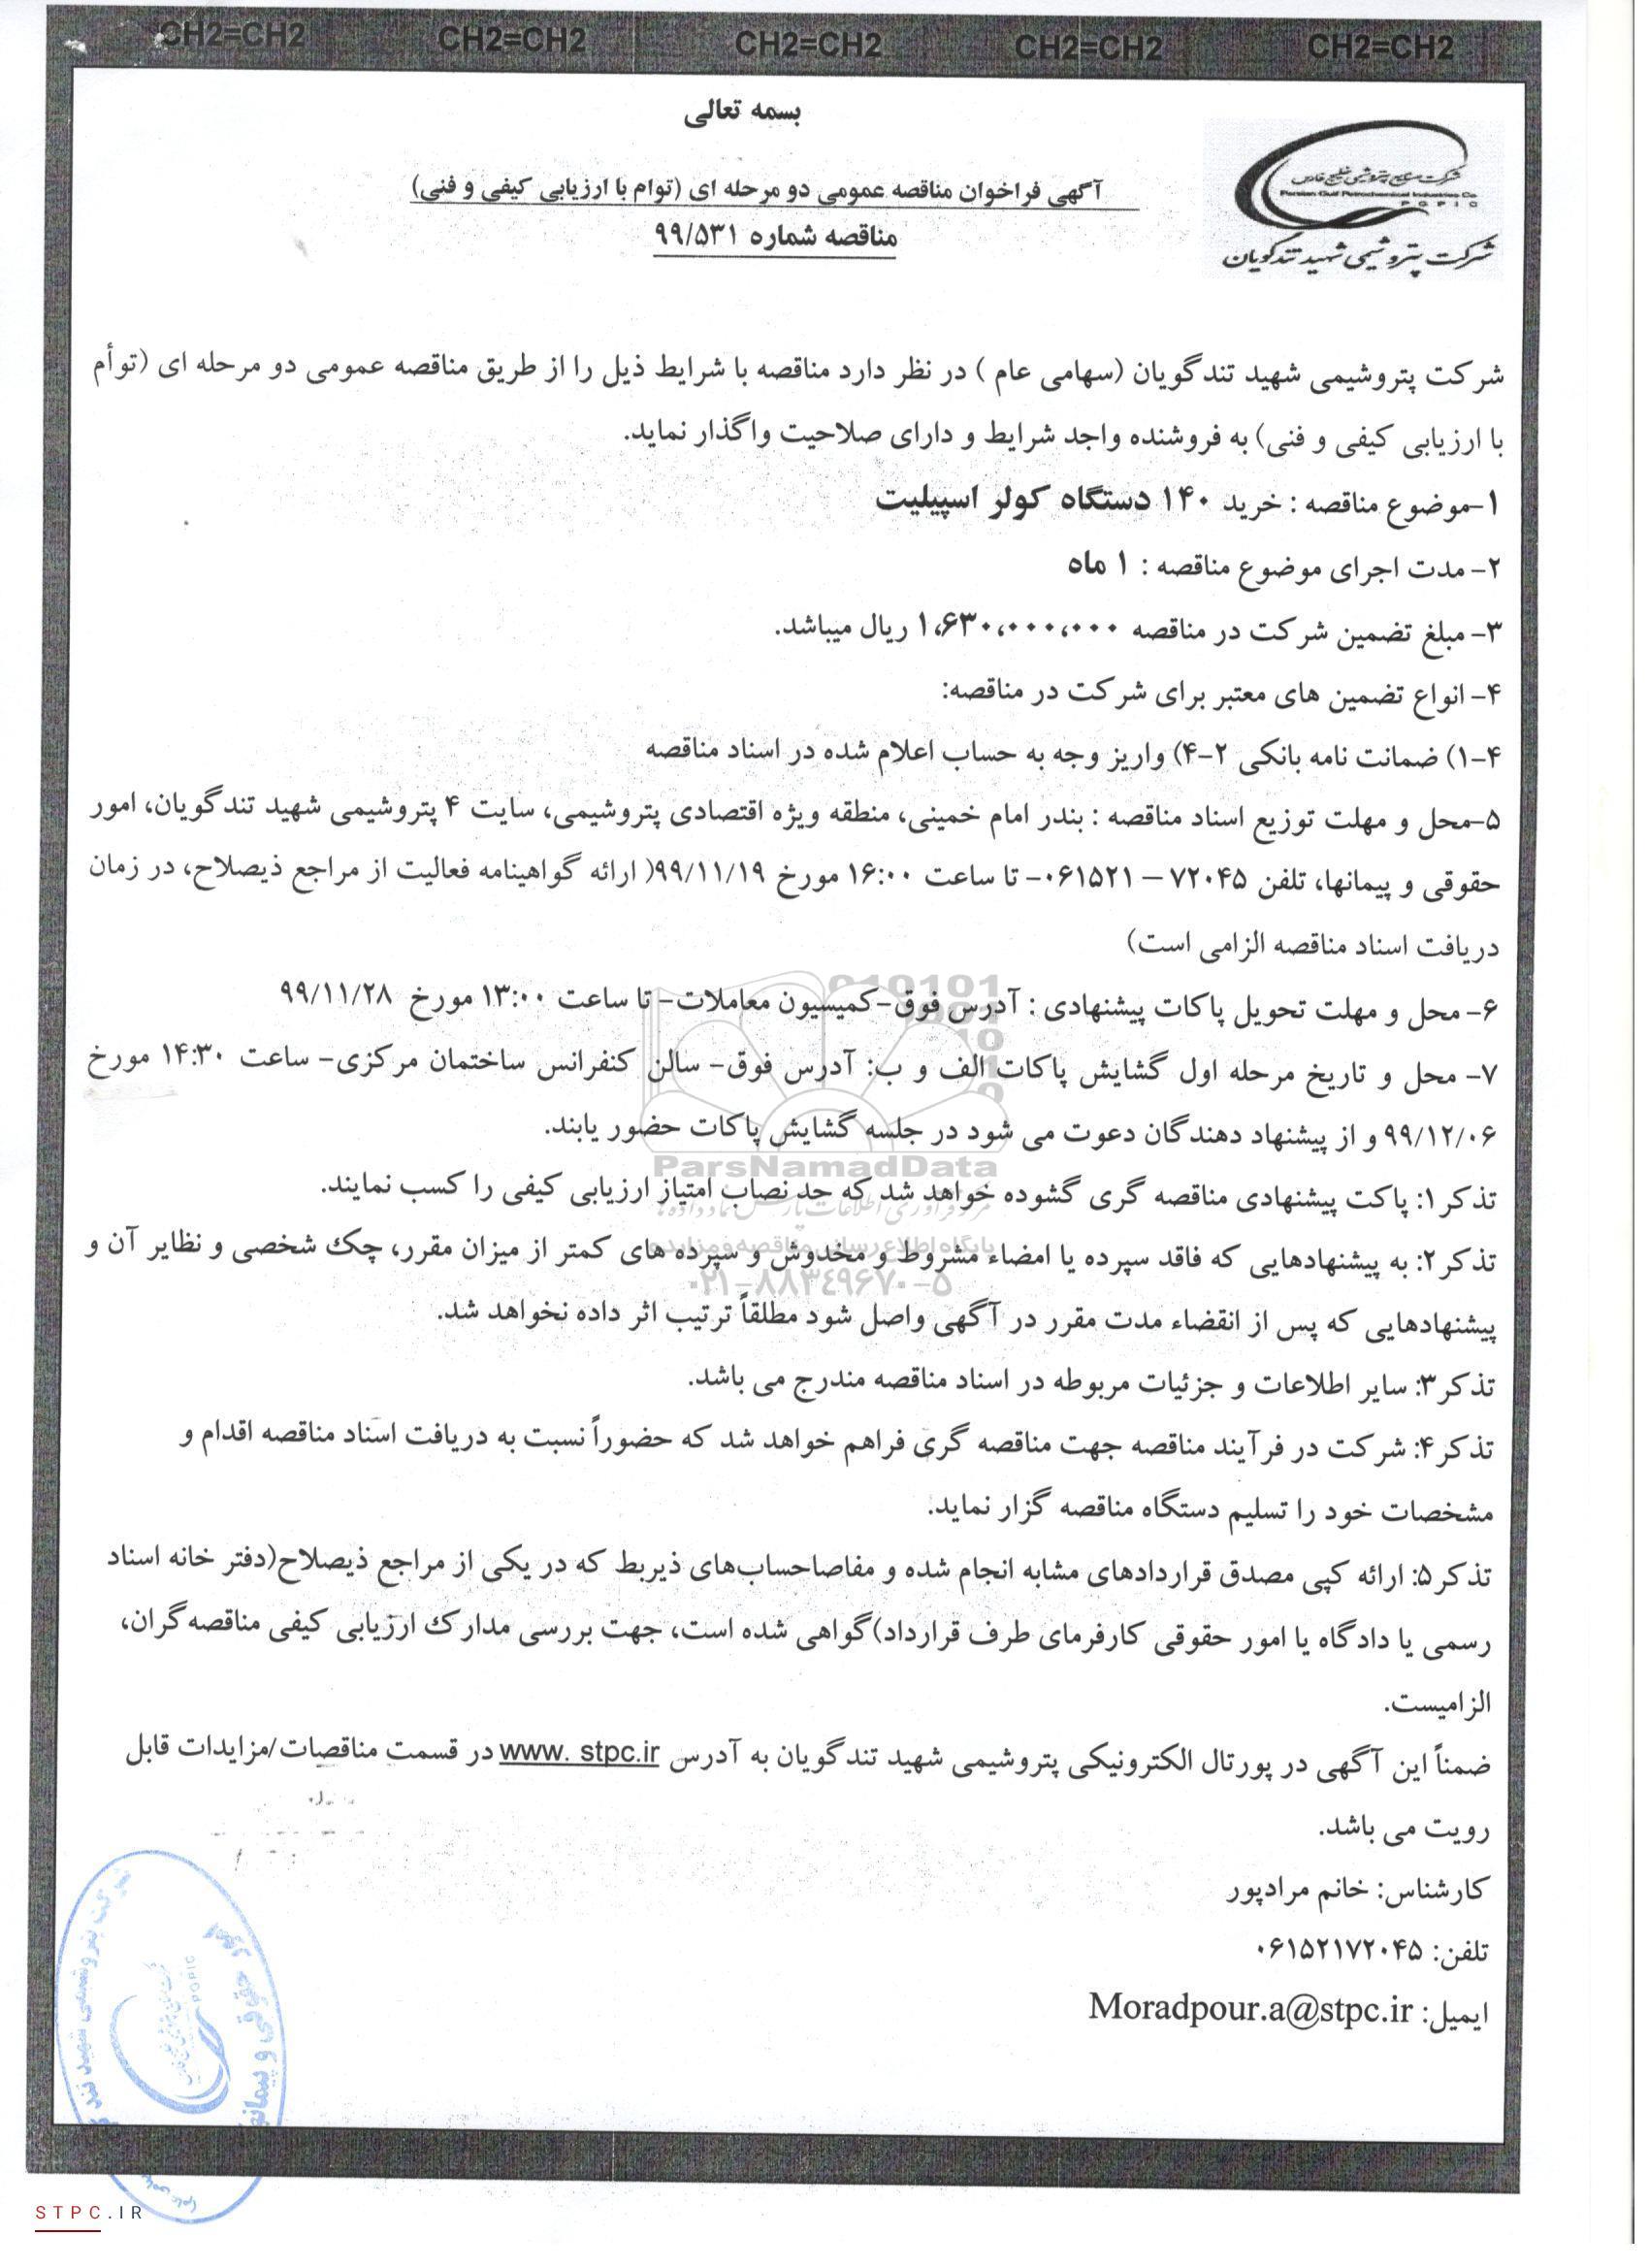 CH2=CH2 CH2=CH2 CH2=CH2 CH2=CH2 CH2=CH2
بسمه تعالی
شرکت صنایع پتروشیمی خلیج فارس
Persian Gulf Petrochemical Industries Co
PGPIC
شرکت پتروشیمی شهید تندگویان
آگهی فراخوان مناقصه عمومی دو مرحله ای (توام با ارزیابی کیفی و فنی)
مناقصه شماره ۹۹/۵۳۱
شرکت پتروشیمی شهید تندگویان (سهامی عام ) در نظر دارد مناقصه با شرایط ذیل را از طریق مناقصه عمومی دو مرحله ای (توأم
با ارزیابی کیفی و فنی) به فروشنده واجد شرایط و دارای صلاحیت واگذار نماید.
۱-موضوع مناقصه : خرید ۱۴۰ دستگاه کولر اسپیلیت
۲- مدت اجرای موضوع مناقصه : ۱ ماه
۳- مبلغ تضمین شرکت در مناقصه ۱،۶۳۰،۰۰۰،۰۰۰ ریال میباشد.
۴- انواع تضمین های معتبر برای شرکت در مناقصه:
۴-۱) ضمانت نامه بانکی ۲-۴) واریز وجه به حساب اعلام شده در اسناد مناقصه
۵-محل و مهلت توزیع اسناد مناقصه : بندر امام خمینی، منطقه ویژه اقتصادی پتروشیمی، سایت ۴ پتروشیمی شهید تندگویان، امور
حقوقی و پیمانها، تلفن ۷۲۰۴۵ – ۰۶۱۵۲۱- تا ساعت ۱۶:۰۰ مورخ ۹۹/۱۱/۱۹( ارائه گواهینامه فعالیت از مراجع ذیصلاح، در زمان
دریافت اسناد مناقصه الزامی است)
۶- محل و مهلت تحویل پاکات پیشنهادی : آدرس فوق-کمیسیون معاملات- تا ساعت ۱۳:۰۰ مورخ ۹۹/۱۱/۲۸
۷- محل و تاریخ مرحله اول گشایش پاکات الف و ب: آدرس فوق- سالن کنفرانس ساختمان مرکزی- ساعت ۱۴:۳۰ مورخ
۹۹/۱۲/۰۶ و از پیشنهاد دهندگان دعوت می شود در جلسه گشایش پاکات حضور یابند.
ParsNamadData
تذکر۱: پاکت پیشنهادی مناقصه گری گشوده خواهد شد که حد نصاب امتیاز ارزیابی کیفی را کسب نمایند.
مرکز فرآوری اطلاعات پارس نماد داده ها
پایگاه اطلاع رسانی مناقصه و مزایده
تذکر۲: به پیشنهادهایی که فاقد سپرده یا امضاء مشروط و مخدوش و سپرده های کمتر از میزان مقرر، چک شخصی و نظایر آن و
۰۲۱-۸۸۳۴۹۶۷۰-۵
پیشنهادهایی که پس از انقضاء مدت مقرر در آگهی واصل شود مطلقاً ترتیب اثر داده نخواهد شد.
تذکر۳: سایر اطلاعات و جزئیات مربوطه در اسناد مناقصه مندرج می باشد.
تذکر۴: شرکت در فرآیند مناقصه جهت مناقصه گری فراهم خواهد شد که حضوراً نسبت به دریافت اسناد مناقصه اقدام و
مشخصات خود را تسلیم دستگاه مناقصه گزار نماید.
تذکر۵: ارائه کپی مصدق قراردادهای مشابه انجام شده و مفاصاحساب‌های ذیربط که در یکی از مراجع ذیصلاح(دفتر خانه اسناد
رسمی یا دادگاه یا امور حقوقی کارفرمای طرف قرارداد)گواهی شده است، جهت بررسی مدارک ارزیابی کیفی مناقصه‌گران،
الزامیست.
ضمناً این آگهی در پورتال الکترونیکی پتروشیمی شهید تندگویان به آدرس www. stpc.ir در قسمت مناقصات/مزایدات قابل
رویت می باشد.
کارشناس: خانم مرادپور
تلفن: ۰۶۱۵۲۱۷۲۰۴۵
ایمیل: Moradpour.a@stpc.ir
شرکت پتروشیمی شهید تند
PGPIC
امور حقوقی و پیمانها
STPC.IR